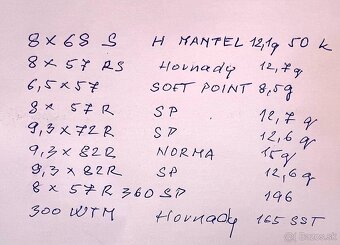 8 x 68 S H MANTEL 12,1g 50 k
8 x 57 RS Hornady 12,7g
6,5 x 57 SOFT POINT 8,5g
8 x 57 R SP 12,7g
9,3 x 72R SP 12,6g
9,3 x 82R NORMA 15g
9,3 x 82R SP 12,6g
8 x 57R 360 SP 196
300 WTM Hornady 165 SST
Bazos.sk